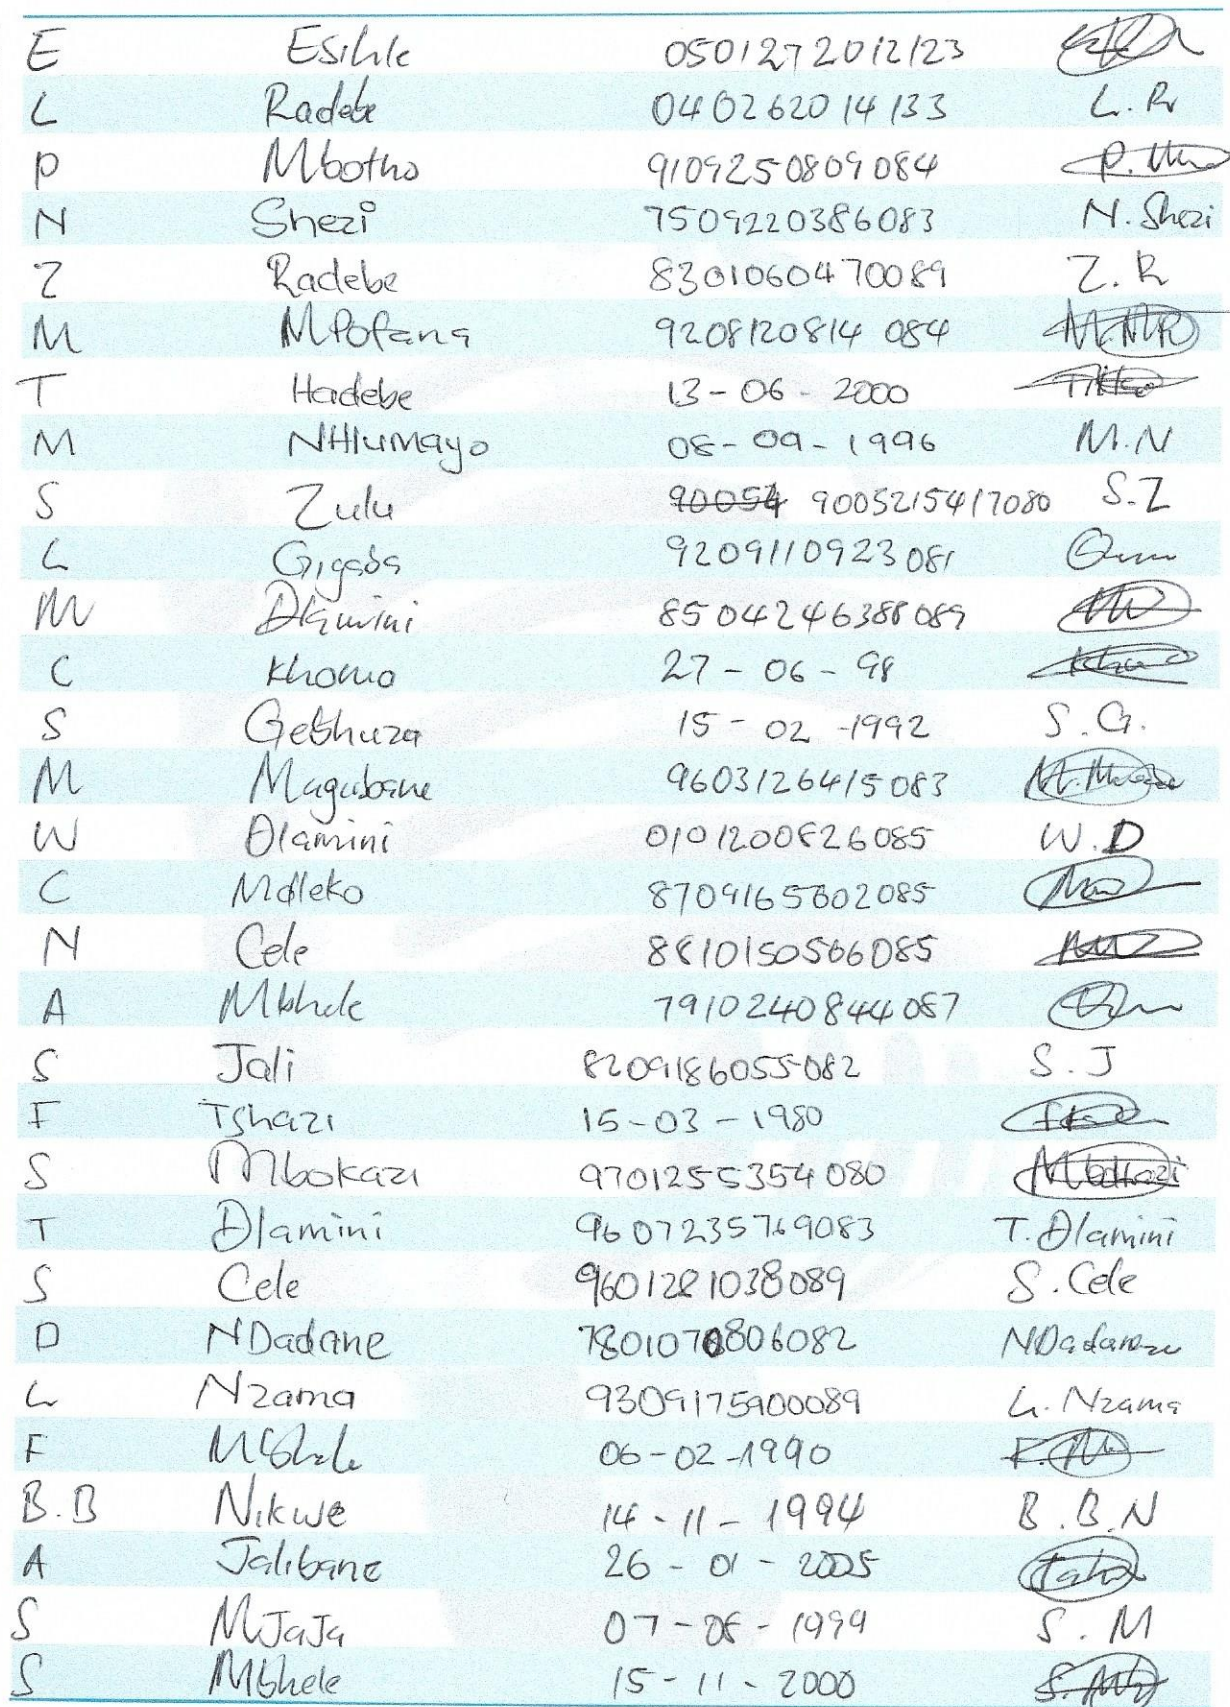 E Esihle 0501272012123
L Radebe 040262014133 L.R
P Mbotho 9109250809084 P.
N Shezi 7509220386083 N.Shezi
Z Radebe 8301060470089 Z.R
M MPofana 9208120814 084
T Hadebe 13-06-2000
M NHlumayo 08-09-1996 M.N
S Zulu 90054 9005215417080 S.Z
L Gigaba 9209110923081
M Dlamini 8504246388089
C Khomo 27-06-98
S Gebhuza 15-02-1992 S.G.
M Magubane 9603126415083
W Dlamini 0101200826085 W.D
C Mdleko 8709165802085
N Cele 8810150566085
A Mbhele 7910240844087
S Jali 8209186055082 S.J
F Tshazi 15-03-1980
S Mbokazi 9701255354080
T Dlamini 9607235769083 T.Dlamini
S Cele 9601281038089 S.Cele
D NDadane 7801070806082
L Nzama 9309175900089 L.Nzama
F Mbhele 06-02-1990
B.B Nikwe 14-11-1994 B.B.N
A Jalibane 26-01-2005
S MJaJa 07-08-1999 S.M
S Mbhele 15-11-2000